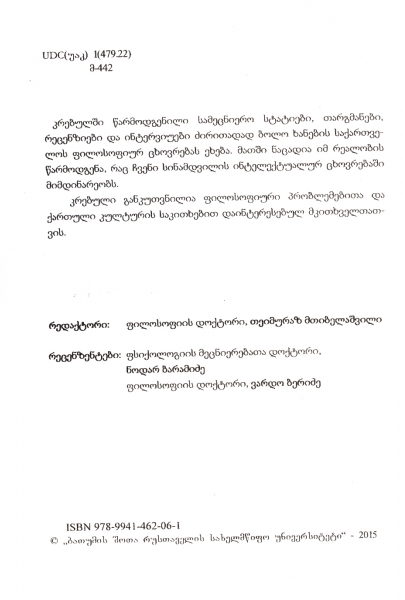 UDC(უაკ) 1(479.22)
მ-442
კრებულში წარმოდგენილი სამეცნიერო სტატიები, თარგმანები,
რეცენზიები და ინტერვიუები ძირითადად ბოლო ხანების საქართვე-
ლოს ფილოსოფიურ ცხოვრებას ეხება. მათში ნაცადია იმ რეალობის
წარმოდგენა, რაც ჩვენი სინამდვილის ინტელექტუალურ ცხოვრებაში
მიმდინარეობს.
კრებული განკუთვნილია ფილოსოფიური პრობლემებითა და
ქართული კულტურის საკითხებით დაინტერესებულ მკითხველთათ-
ვის.
რედაქტორი: ფილოსოფიის დოქტორი, თეიმურაზ მთიბელაშვილი
რეცენზენტები: ფსიქოლოგიის მეცნიერებათა დოქტორი,
ნოდარ ბარამიძე
ფილოსოფიის დოქტორი, ვარდო ბერიძე
ISBN 978-9941-462-06-1
© „ბათუმის შოთა რუსთაველის სახელმწიფო უნივერსიტეტი“ - 2015